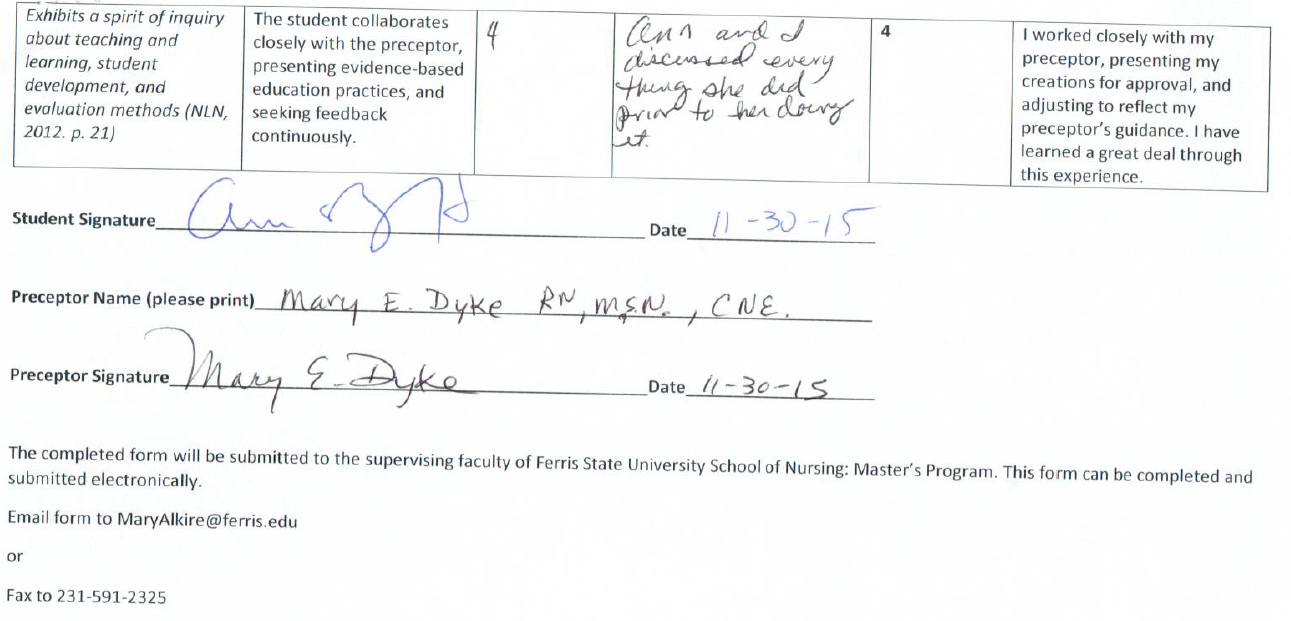 Exhibits a spirit of inquiry
about teaching and
learning, student
development, and
evaluation methods (NLN,
2012. p. 21)
The student collaborates
closely with the preceptor,
presenting evidence-based
education practices, and
seeking feedback
continuously.
4
Ann and I
discussed every
thing she did
prior to her doing
it.
4
I worked closely with my
preceptor, presenting my
creations for approval, and
adjusting to reflect my
preceptor's guidance. I have
learned a great deal through
this experience.
Student Signature Ann Date 11-30-15
Preceptor Name (please print) Mary E. Dyke RN, M.S.N., CNE.
Preceptor Signature Mary E. Dyke Date 11-30-15
The completed form will be submitted to the supervising faculty of Ferris State University School of Nursing: Master's Program. This form can be completed and
submitted electronically.
Email form to MaryAlkire@ferris.edu
or
Fax to 231-591-2325